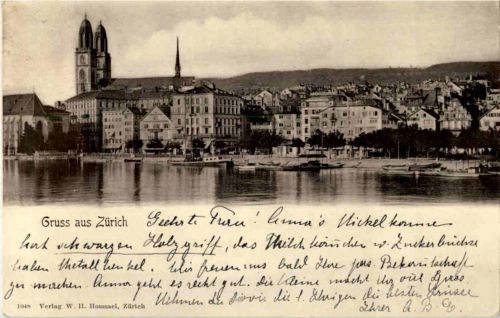 Gruss aus Zürich
Geehrte Frau! Anna's Nickelkanne
hat schwarzen Holzgriff, das Milchkännchen u. Zuckerbüchse
haben Metallhenkel. Wir freuen uns bald Ihre pers. Bekanntschaft
zu machen. Anna geht es recht gut. Die Kleine macht ihr viel Spass.
Nehmen Sie sowie die l. Ihrigen die besten Grüsse
Ihrer A.B.C.
1048 Verlag W. H. Hommel, Zürich